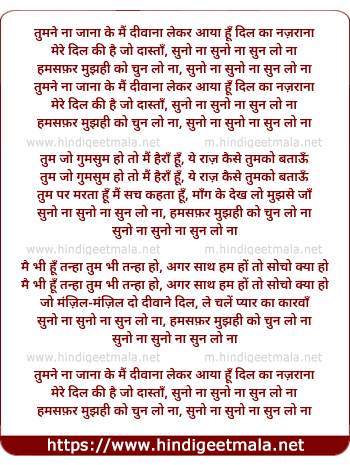 तुमने ना जाना के मैं दीवाना लेकर आया हूँ दिल का नज़राना
मेरे दिल की है जो दास्ताँ, सुनो ना सुनो ना सुन लो ना
हमसफ़र मुझही को चुन लो ना, सुनो ना सुनो ना सुन लो ना
तुमने ना जाना के मैं दीवाना लेकर आया हूँ दिल का नज़राना
मेरे दिल की है जो दास्ताँ, सुनो ना सुनो ना सुन लो ना
हमसफ़र मुझही को चुन लो ना, सुनो ना सुनो ना सुन लो ना
www.hindigeetmala.net m.hindigeetmala.net
तुम जो गुमसुम हो तो मैं हैराँ हूँ, ये राज़ कैसे तुमको बताऊँ
तुम जो गुमसुम हो तो मैं हैराँ हूँ, ये राज़ कैसे तुमको बताऊँ
तुम पर मरता हूँ मैं सच कहता हूँ, माँग के देख लो मुझसे जाँ
सुनो ना सुनो ना सुन लो ना, हमसफ़र मुझही को चुन लो ना
सुनो ना सुनो ना सुन लो ना
www.hindigeetmala.net m.hindigeetmala.net
मै भी हूँ तन्हा तुम भी तन्हा हो, अगर साथ हम हों तो सोचो क्या हो
मै भी हूँ तन्हा तुम भी तन्हा हो, अगर साथ हम हों तो सोचो क्या हो
जो मंज़िल-मंज़िल दो दीवाने दिल, ले चलें प्यार का कारवाँ
सुनो ना सुनो ना सुन लो ना, हमसफ़र मुझही को चुन लो ना
सुनो ना सुनो ना सुन लो ना
www.hindigeetmala.net m.hindigeetmala.net
तुमने ना जाना के मैं दीवाना लेकर आया हूँ दिल का नज़राना
मेरे दिल की है जो दास्ताँ, सुनो ना सुनो ना सुन लो ना
हमसफ़र मुझही को चुन लो ना, सुनो ना सुनो ना सुन लो ना
https://www.hindigeetmala.net